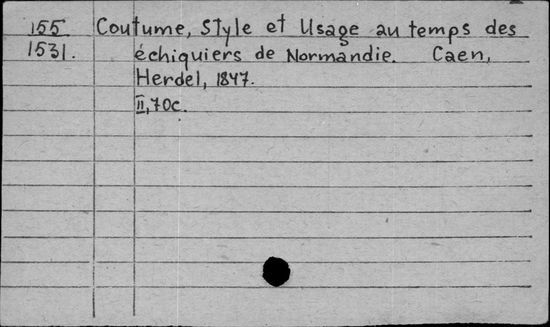 155 Coutume, Style et Usage au temps des
1531. échiquiers de Normandie. Caen,
Herdel, 1847.
II, 70c.